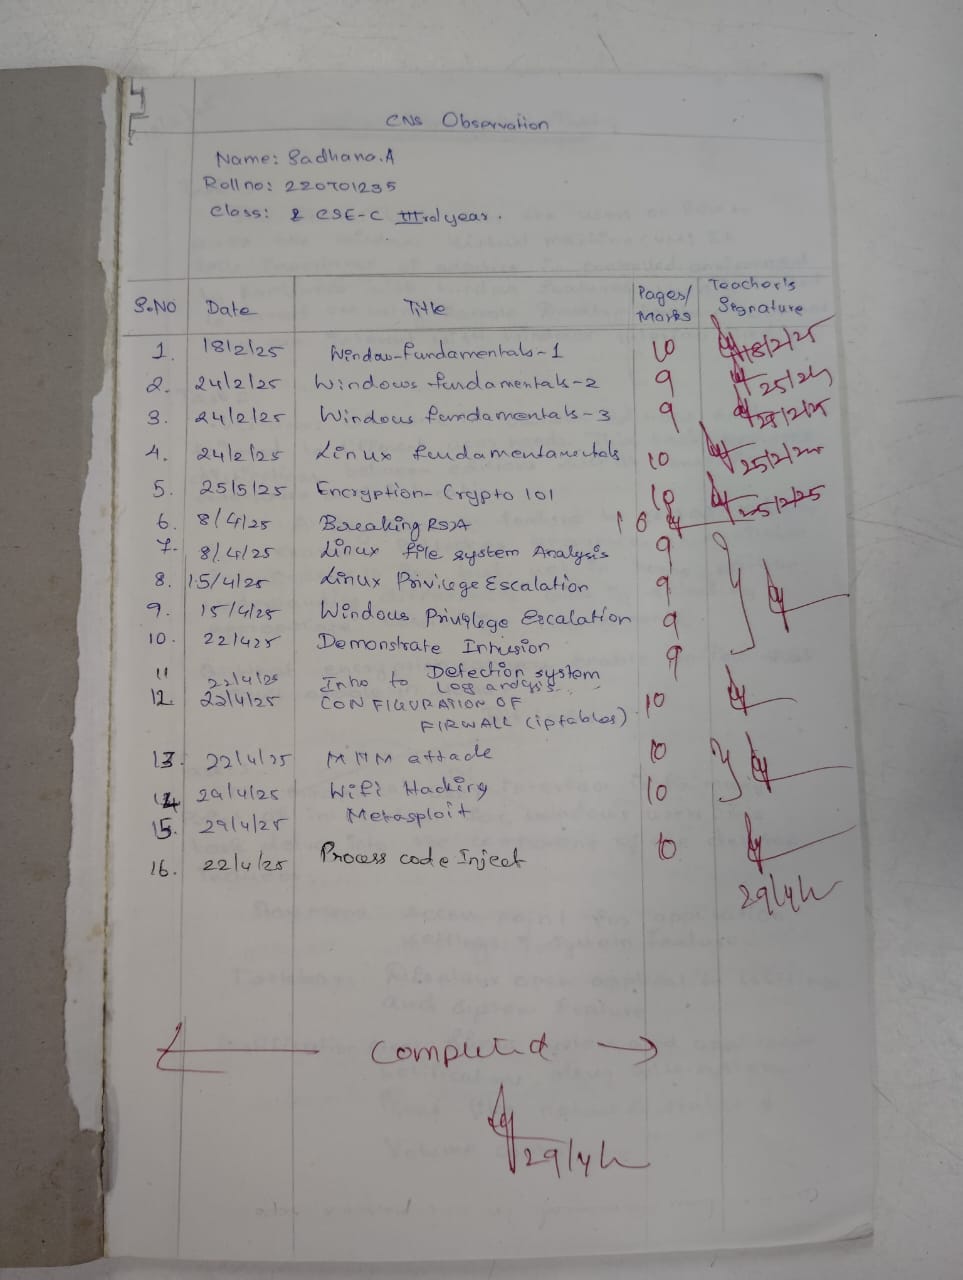 CNS Observation
Name: Sadhana.A
Roll no: 220701235
Class: CSE-C IIIrd year.
S.NO Date Title Pages/ Marks Teacher's Signature
1. 18/2/25 Window-fundamentals-1 10 18/2/25
2. 24/2/25 Windows fundamentals-2 9
3. 24/2/25 Windows fundamentals-3 9
4. 24/2/25 Linux 10
5. 25/5/25 Encryption-Crypto 101 10 25/2/25
6. 8/4/25 Breaking RSA
7. 8/4/25 Linux file system Analysis 9
8. 15/4/25 Linux Privilege Escalation 9
9. 15/4/25 Windows Privilege Escalation 9
10. 22/425 Demonstrate Intrusion 9
Detection system
11 22/4/25 Intro to Log analysis
12. 22/4/25 CONFIGURATION OF 10
FIRWALL (iptables)
13. 22/4/25 MITM attack 10
14 29/4/25 Wifi Hacking 10
15. 29/4/25 Metasploit
16. 22/4/25 Process code Inject 10
completed